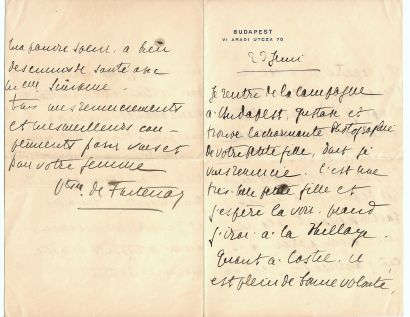 BUDAPEST
VI ARADI UTCZA 70
22 Juin
Je rentre de la campagne
à Budapest, et
trouve la charmante Photographie
de votre petite fille, dont je
vous remercie. C'est une
très petite fille et
j'espère la voir quand
j'irai à la
Quant à il
est plein de bonne volonté,
ma pauvre soeur a bien
des ennuis de santé avec
Simone.
Tous mes remerciements
et mes meilleurs com-
pliments pour vous et
pour votre femme
de Fontenay